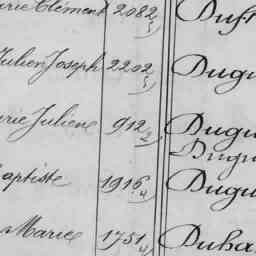 Clément 2082/5
Julien Joseph 2202/5 Dugu
Juliene 912/2 Dugu
Dugu
aptiste 1916/4 Dugu
Marie 1751/4 Duha